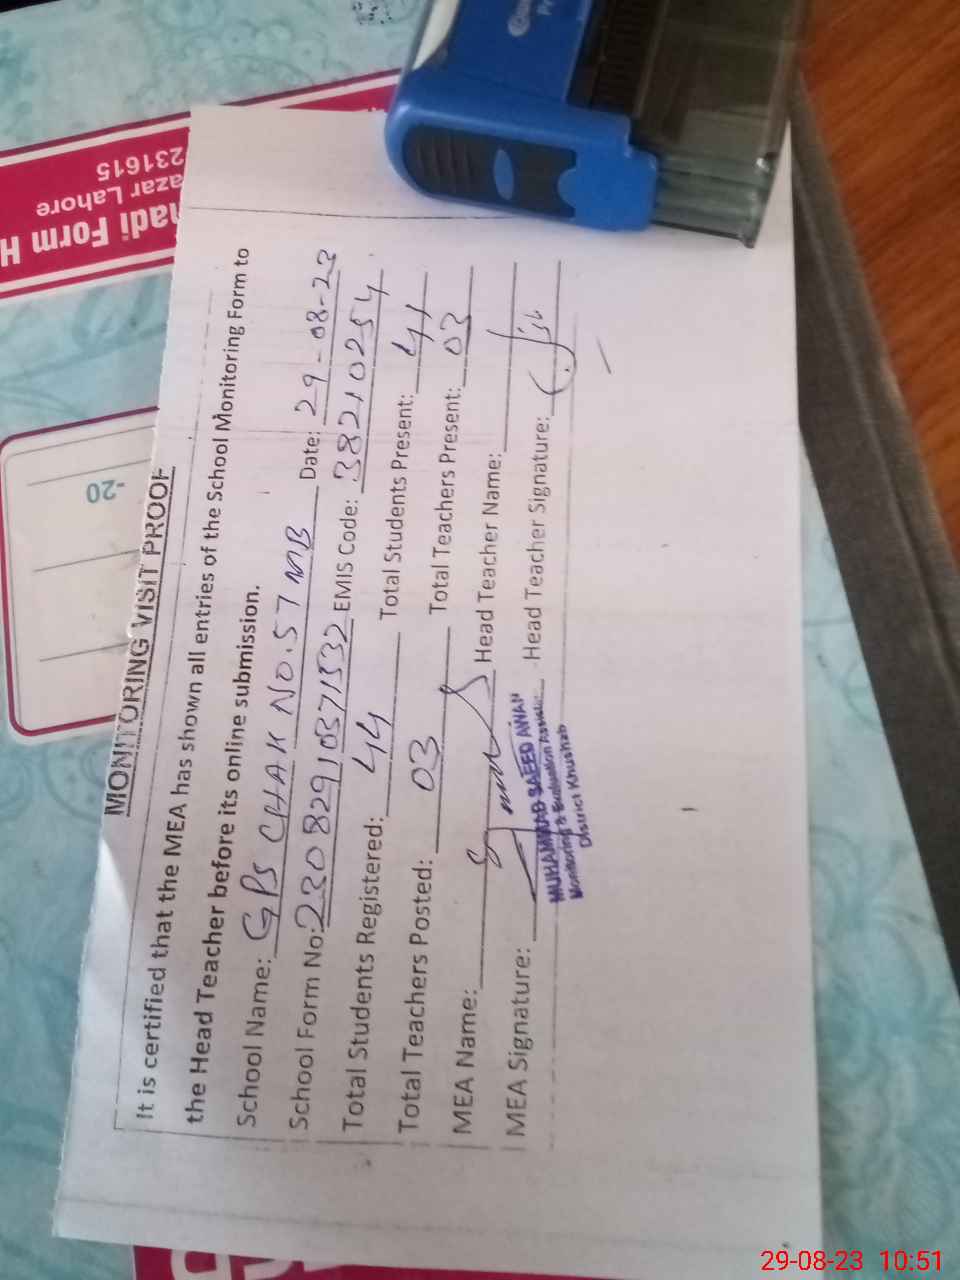 MONITORING VISIT PROOF
It is certified that the MEA has shown all entries of the School Monitoring Form to
the Head Teacher before its online submission.
School Name: GPS CHAK NO.57 MB Date: 29-08-23
School Form No: 23082910371532 EMIS Code: 38210254
Total Students Registered: 44 Total Students Present: 41
Total Teachers Posted: 03 Total Teachers Present: 03
MEA Name: Head Teacher Name:
MEA Signature: Head Teacher Signature:
MUHAMMAD SAEED AWAN
Monitoring & Evaluation
District Khushab
hadi Form H
azar Lahore
231615
-20
29-08-23 10:51